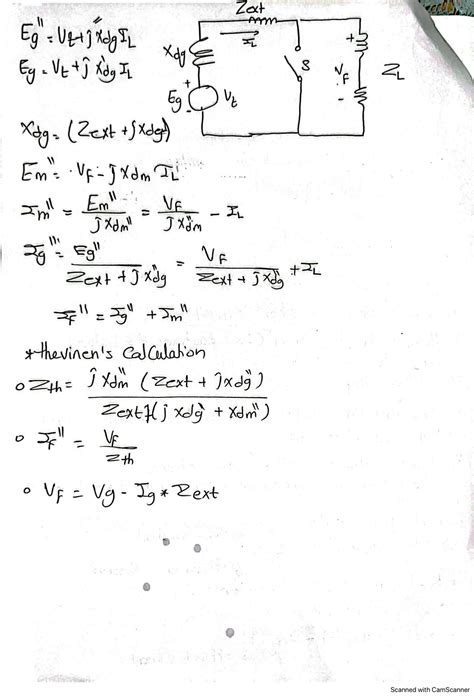 Zext
Eg'' = Vt + j Xdg'' IL
Eg' = Vt + j Xdg' IL
IL
Xdg
S
+
VF
-
ZL
+
Eg
-
Vt
Xdg = (Zext + j Xdg'')
Em'' = VF - j Xdm'' IL
Im'' = Em'' / j Xdm'' = VF / j Xdm'' - IL
Ig'' = Eg'' / Zext + j Xdg'' = VF / Zext + j Xdg'' + IL
IF'' = Ig'' + Im''
* thevinen's Calculation
o Zth = j Xdm'' (Zext + j Xdg'') / Zext + (j Xdg'' + Xdm'')
o IF'' = VF / Zth
o VF = Vg - Ig * Zext
Scanned with CamScanner